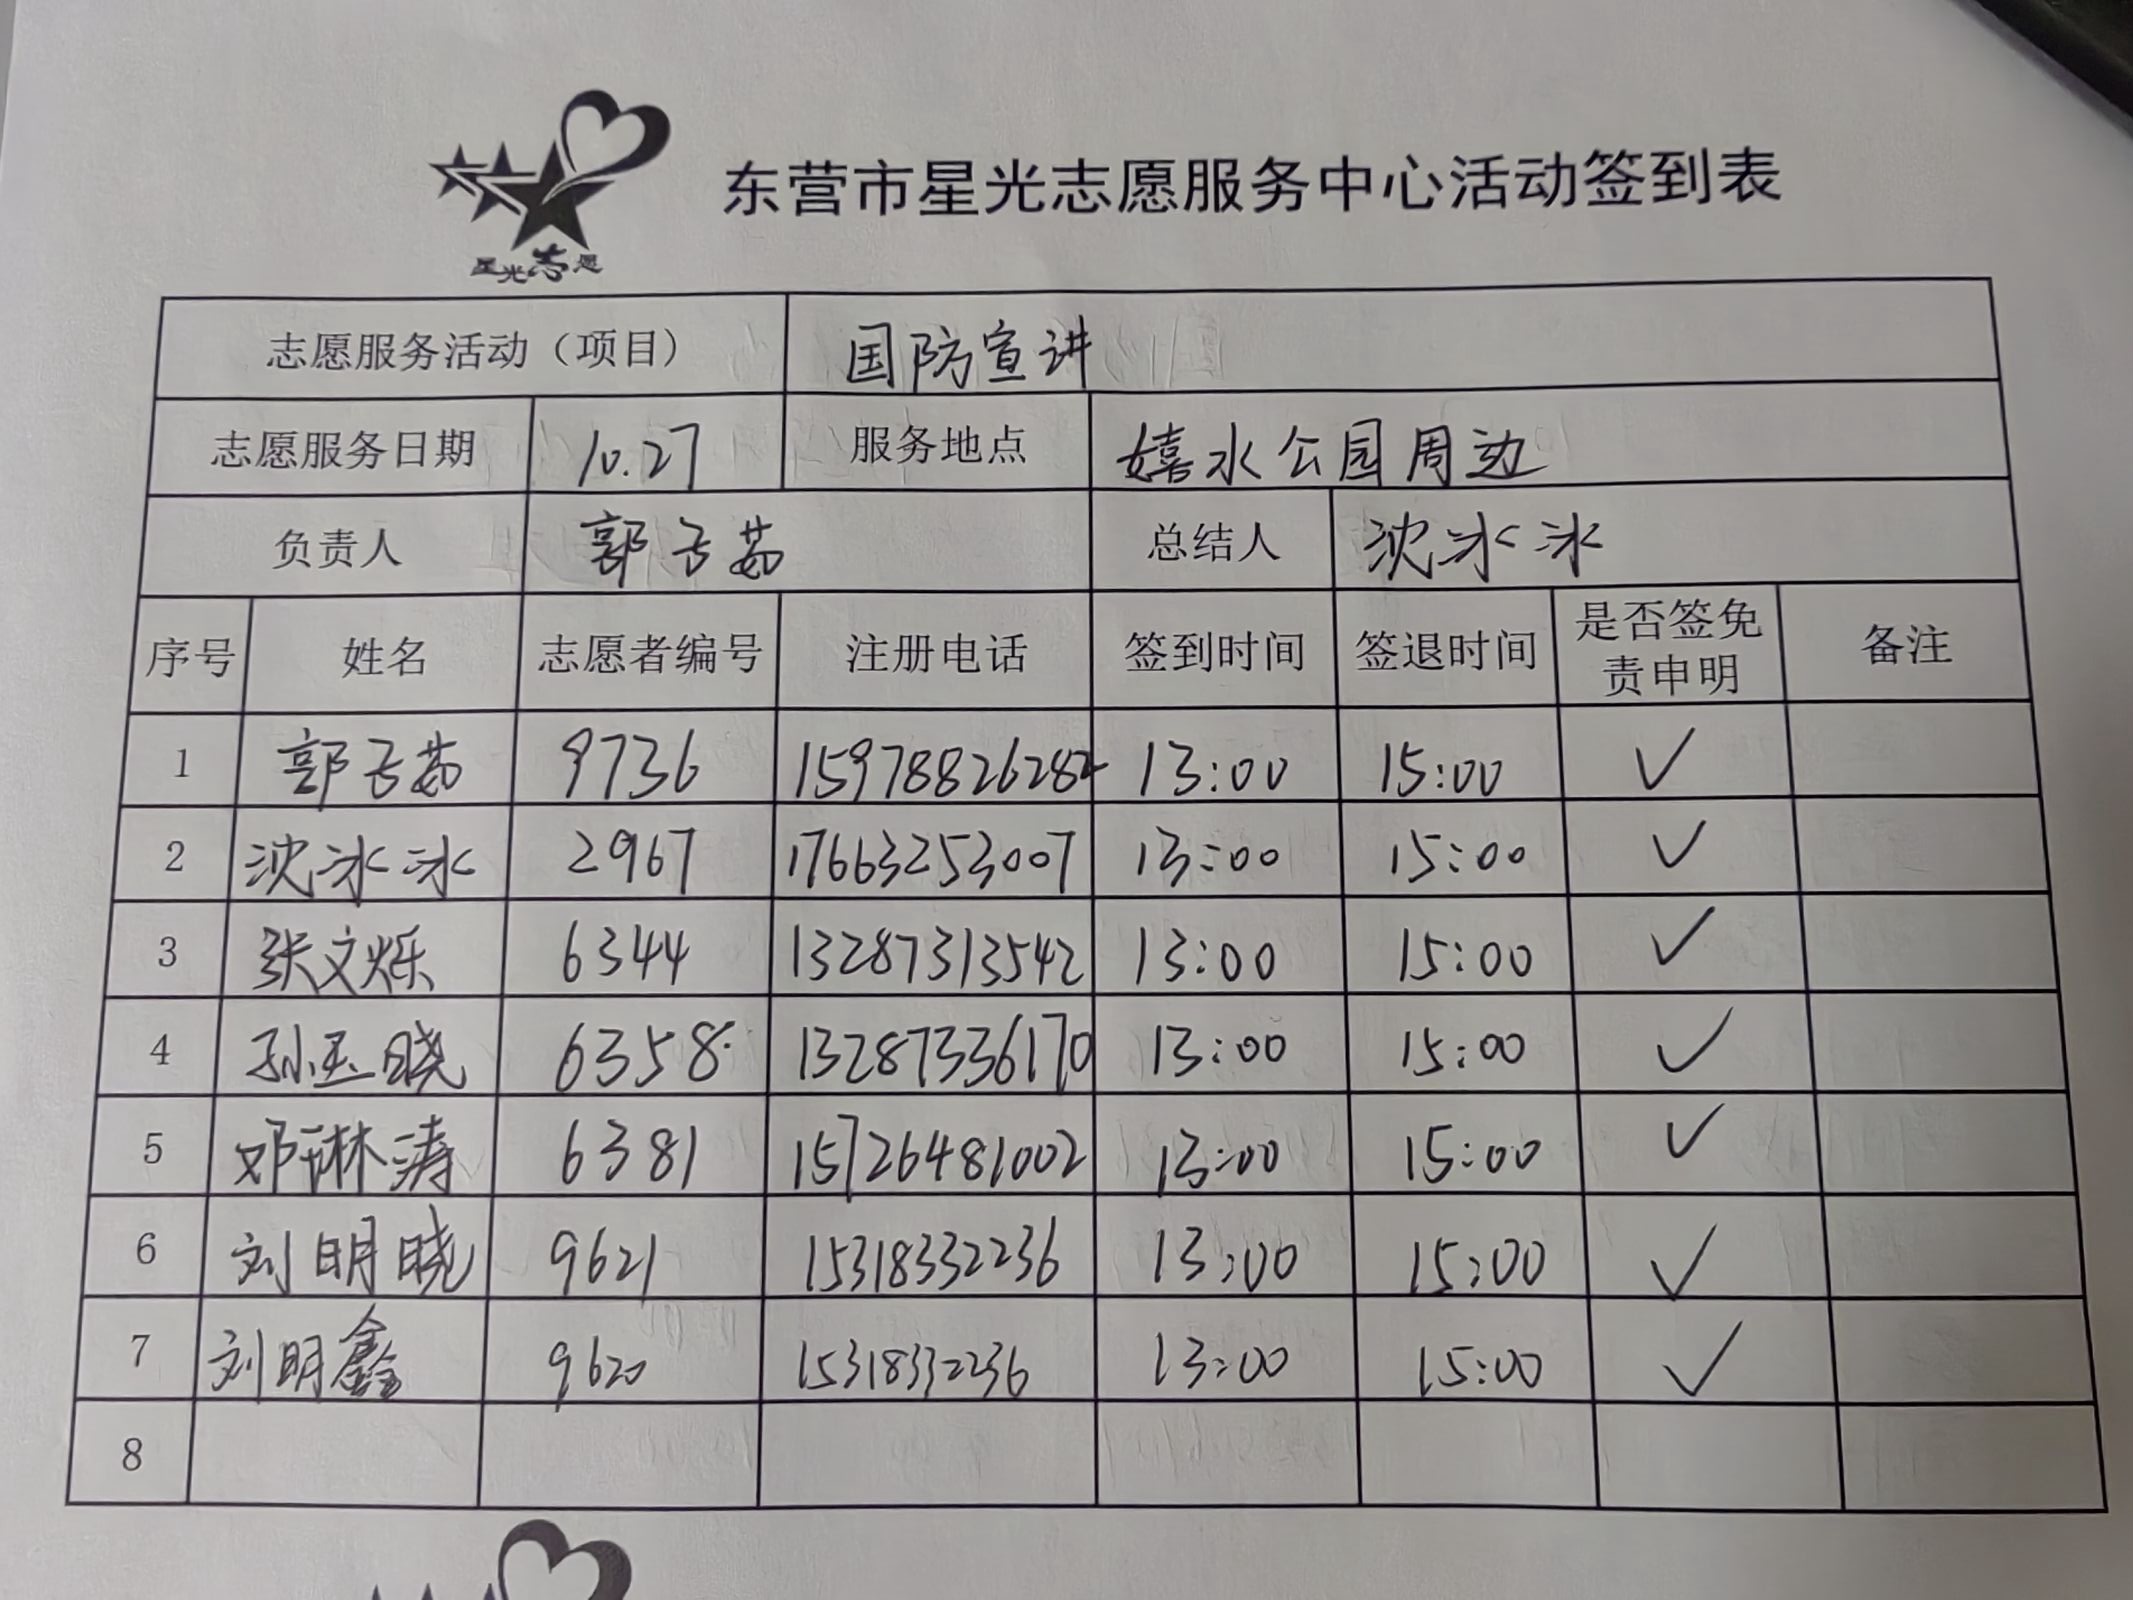 星光志愿
东营市星光志愿服务中心活动签到表
志愿服务活动（项目） 国防宣讲
志愿服务日期 10.27 服务地点 嬉水公园周边
负责人 郭子茹 总结人 沈冰冰
序号 姓名 志愿者编号 注册电话 签到时间 签退时间 是否签免责申明 备注
1 郭子茹 9736 15978826282 13:00 15:00 ✓
2 沈冰冰 2967 17663253007 13:00 15:00 ✓
3 张文烁 6344 13287313542 13:00 15:00 ✓
4 孙玉晓 6358 13287336170 13:00 15:00 ✓
5 邓琳涛 6381 15726481002 13:00 15:00 ✓
6 刘明晓 9621 15318332236 13:00 15:00 ✓
7 刘明鑫 9620 15318332236 13:00 15:00 ✓
8